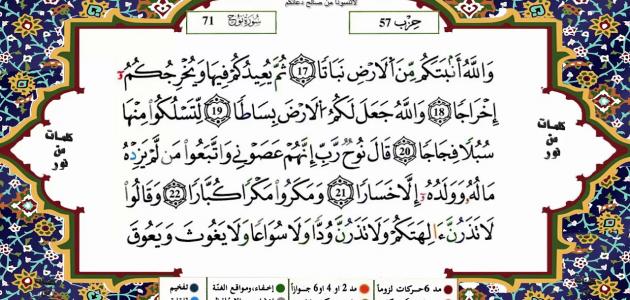 لاتنسونا من صالح دعائكم
حِزْب 57
سُورَةُ نُوحٍ 71
وَاللَّهُ أَنۢبَتَكُم مِّنَ اَلَارْضِ نَبَاتًا 17 ثُمَّ يُعِيدُكُمْ فِيهَا وَيُخْرِجُكُمُۥٓ
إِخْرَاجًا 18 وَاللَّهُ جَعَلَ لَكُمُ اُلَارْضَ بِسَاطًا 19 لِّتَسْلُكُواْ مِنْهَا
سُبُلًا فِجَاجًا 20 قَالَ نُوحٌ رَّبِّ إِنَّهُمْ عَصَوْنِي وَاتَّبَعُواْ مَن لَّمْ يَزِدْهُ
مَالُهُۥ وَوَلَدُهُۥٓ إِلَّا خَسَارًا 21 وَمَكَرُواْ مَكْرًا كُبَّارًا 22 وَقَالُواْ
لَا تَذَرُنَّ ءَالِهَتَكُمْ وَلَا تَذَرُنَّ وُدًّا وَلَا سُوَاعًا وَلَا يَغُوثَ وَيَعُوقَ
كلمات
من
نور
كلمات
من
نور
مد 6 حركات لزوماً
مد 2 أو 4 أو 6 جوازاً
إخفاء، ومواقع الغنّة
تفخيم